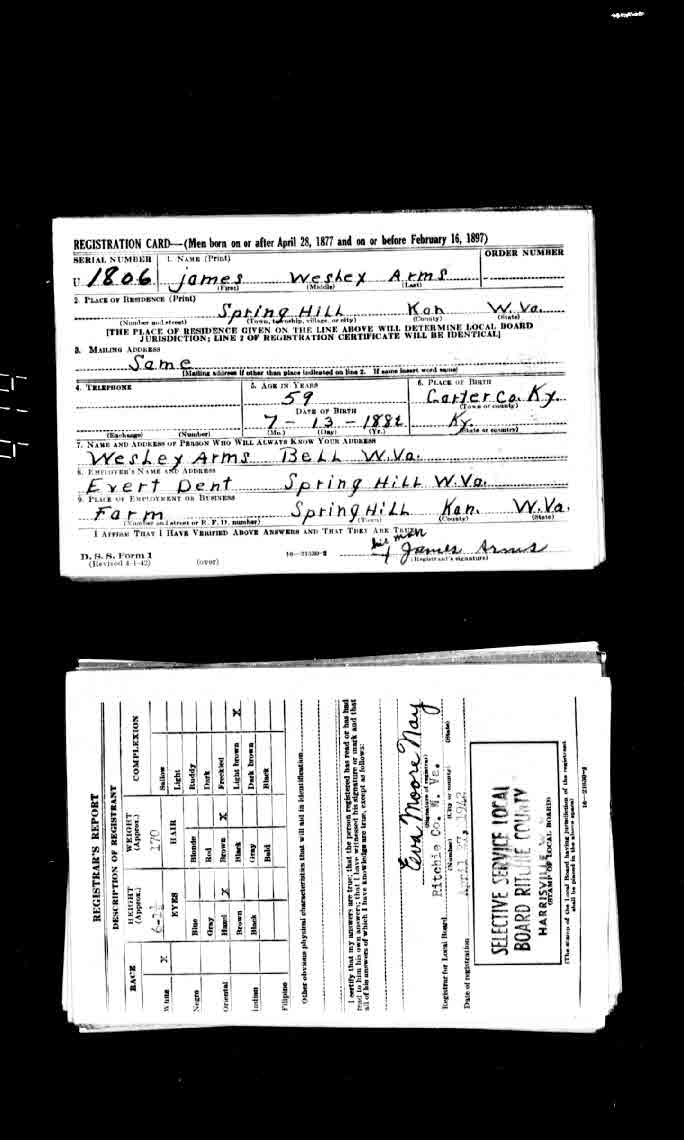 REGISTRATION CARD—(Men born on or after April 28, 1877 and on or before February 16, 1897)
SERIAL NUMBER
1. NAME (Print)
ORDER NUMBER
U 1806 James Wesley Arms
(First) (Middle) (Last)
2. PLACE OF RESIDENCE (Print)
Spring Hill Kan W. Va.
(Number and street) (Town, township, village, or city) (County) (State)
[THE PLACE OF RESIDENCE GIVEN ON THE LINE ABOVE WILL DETERMINE LOCAL BOARD
JURISDICTION; LINE 2 OF REGISTRATION CERTIFICATE WILL BE IDENTICAL]
3. MAILING ADDRESS
Same
[Mailing address if other than place indicated on line 2. If same insert word same]
4. TELEPHONE
5. AGE IN YEARS
6. PLACE OF BIRTH
59
Carter Co. Ky.
(Town or county)
DATE OF BIRTH
7 - 13 - 1882
Ky.
(Exchange) (Number)
(Mo.) (Day) (Yr.)
(State or country)
7. NAME AND ADDRESS OF PERSON WHO WILL ALWAYS KNOW YOUR ADDRESS
Wesley Arms Bell W.Va.
8. EMPLOYER'S NAME AND ADDRESS
Evert Dent Spring Hill W.Va.
9. PLACE OF EMPLOYMENT OR BUSINESS
Farm Spring Hill Kan. W.Va.
(Number and street or R. F. D. number) (Town) (County) (State)
I AFFIRM THAT I HAVE VERIFIED ABOVE ANSWERS AND THAT THEY ARE TRUE.
his mark
D. S. S. Form 1
(Revised 4-1-42)
(over)
16—21630-2
X James Arms
(Registrant's signature)
REGISTRAR'S REPORT
DESCRIPTION OF REGISTRANT
RACE
HEIGHT (Approx.)
WEIGHT (Approx.)
COMPLEXION
White X
170
Sallow
EYES
HAIR
Light
Negro
Blue
Blonde
Ruddy
Gray
Red
Dark
Oriental
Hazel X
Brown X
Freckled
Brown
Black
Light brown X
Indian
Black
Gray
Dark brown
Filipino
Bald
Black
Other obvious physical characteristics that will aid in identification
I certify that my answers are true; that the person registered has read or has had
read to him his own answers; that I have witnessed his signature or mark and that
all of his answers of which I have knowledge are true, except as follows:
Eva Moore Nay
(Signature of registrar)
Registrar for Local Board Ritchie Co. W. Va.
(Number) (City or county) (State)
Date of registration April 27, 1942
SELECTIVE SERVICE LOCAL
BOARD RITCHIE COUNTY
HARRISVILLE
(STAMP OF LOCAL BOARD)
(The stamp of the Local Board having jurisdiction of the registrant
shall be placed in the above space)
16—21630-2